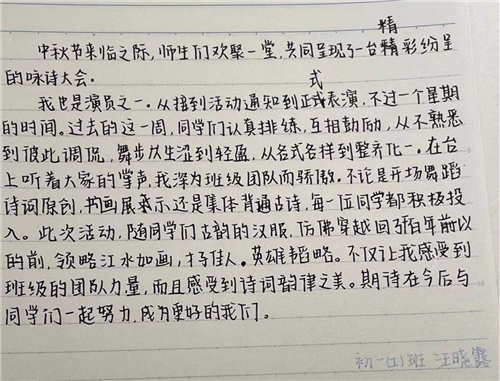 中秋节来临之际,师生们欢聚一堂,共同呈现了一台精彩纷呈
的咏诗大会。
我也是演员之一。从接到活动通知到正式表演,不过一个星期
的时间。过去的这一周,同学们认真排练,互相鼓励,从不熟悉
到彼此调侃,舞步从生涩到轻盈,从各式各样到整齐化一。在台
上听着大家的掌声,我深为班级团队而骄傲。不论是开场舞蹈
诗词原创,书画展示还是集体背诵古诗,每一位同学都积极投
入。此次活动,随同学们古韵的汉服,仿佛穿越回了百年前以
的前,领略江水如画,才子佳人。英雄韬略。不仅让我感受到
班级的团队力量,而且感受到诗词韵律之美。期待在今后与
同学们一起努力,成为更好的我们。
初一(1)班 汪晓露